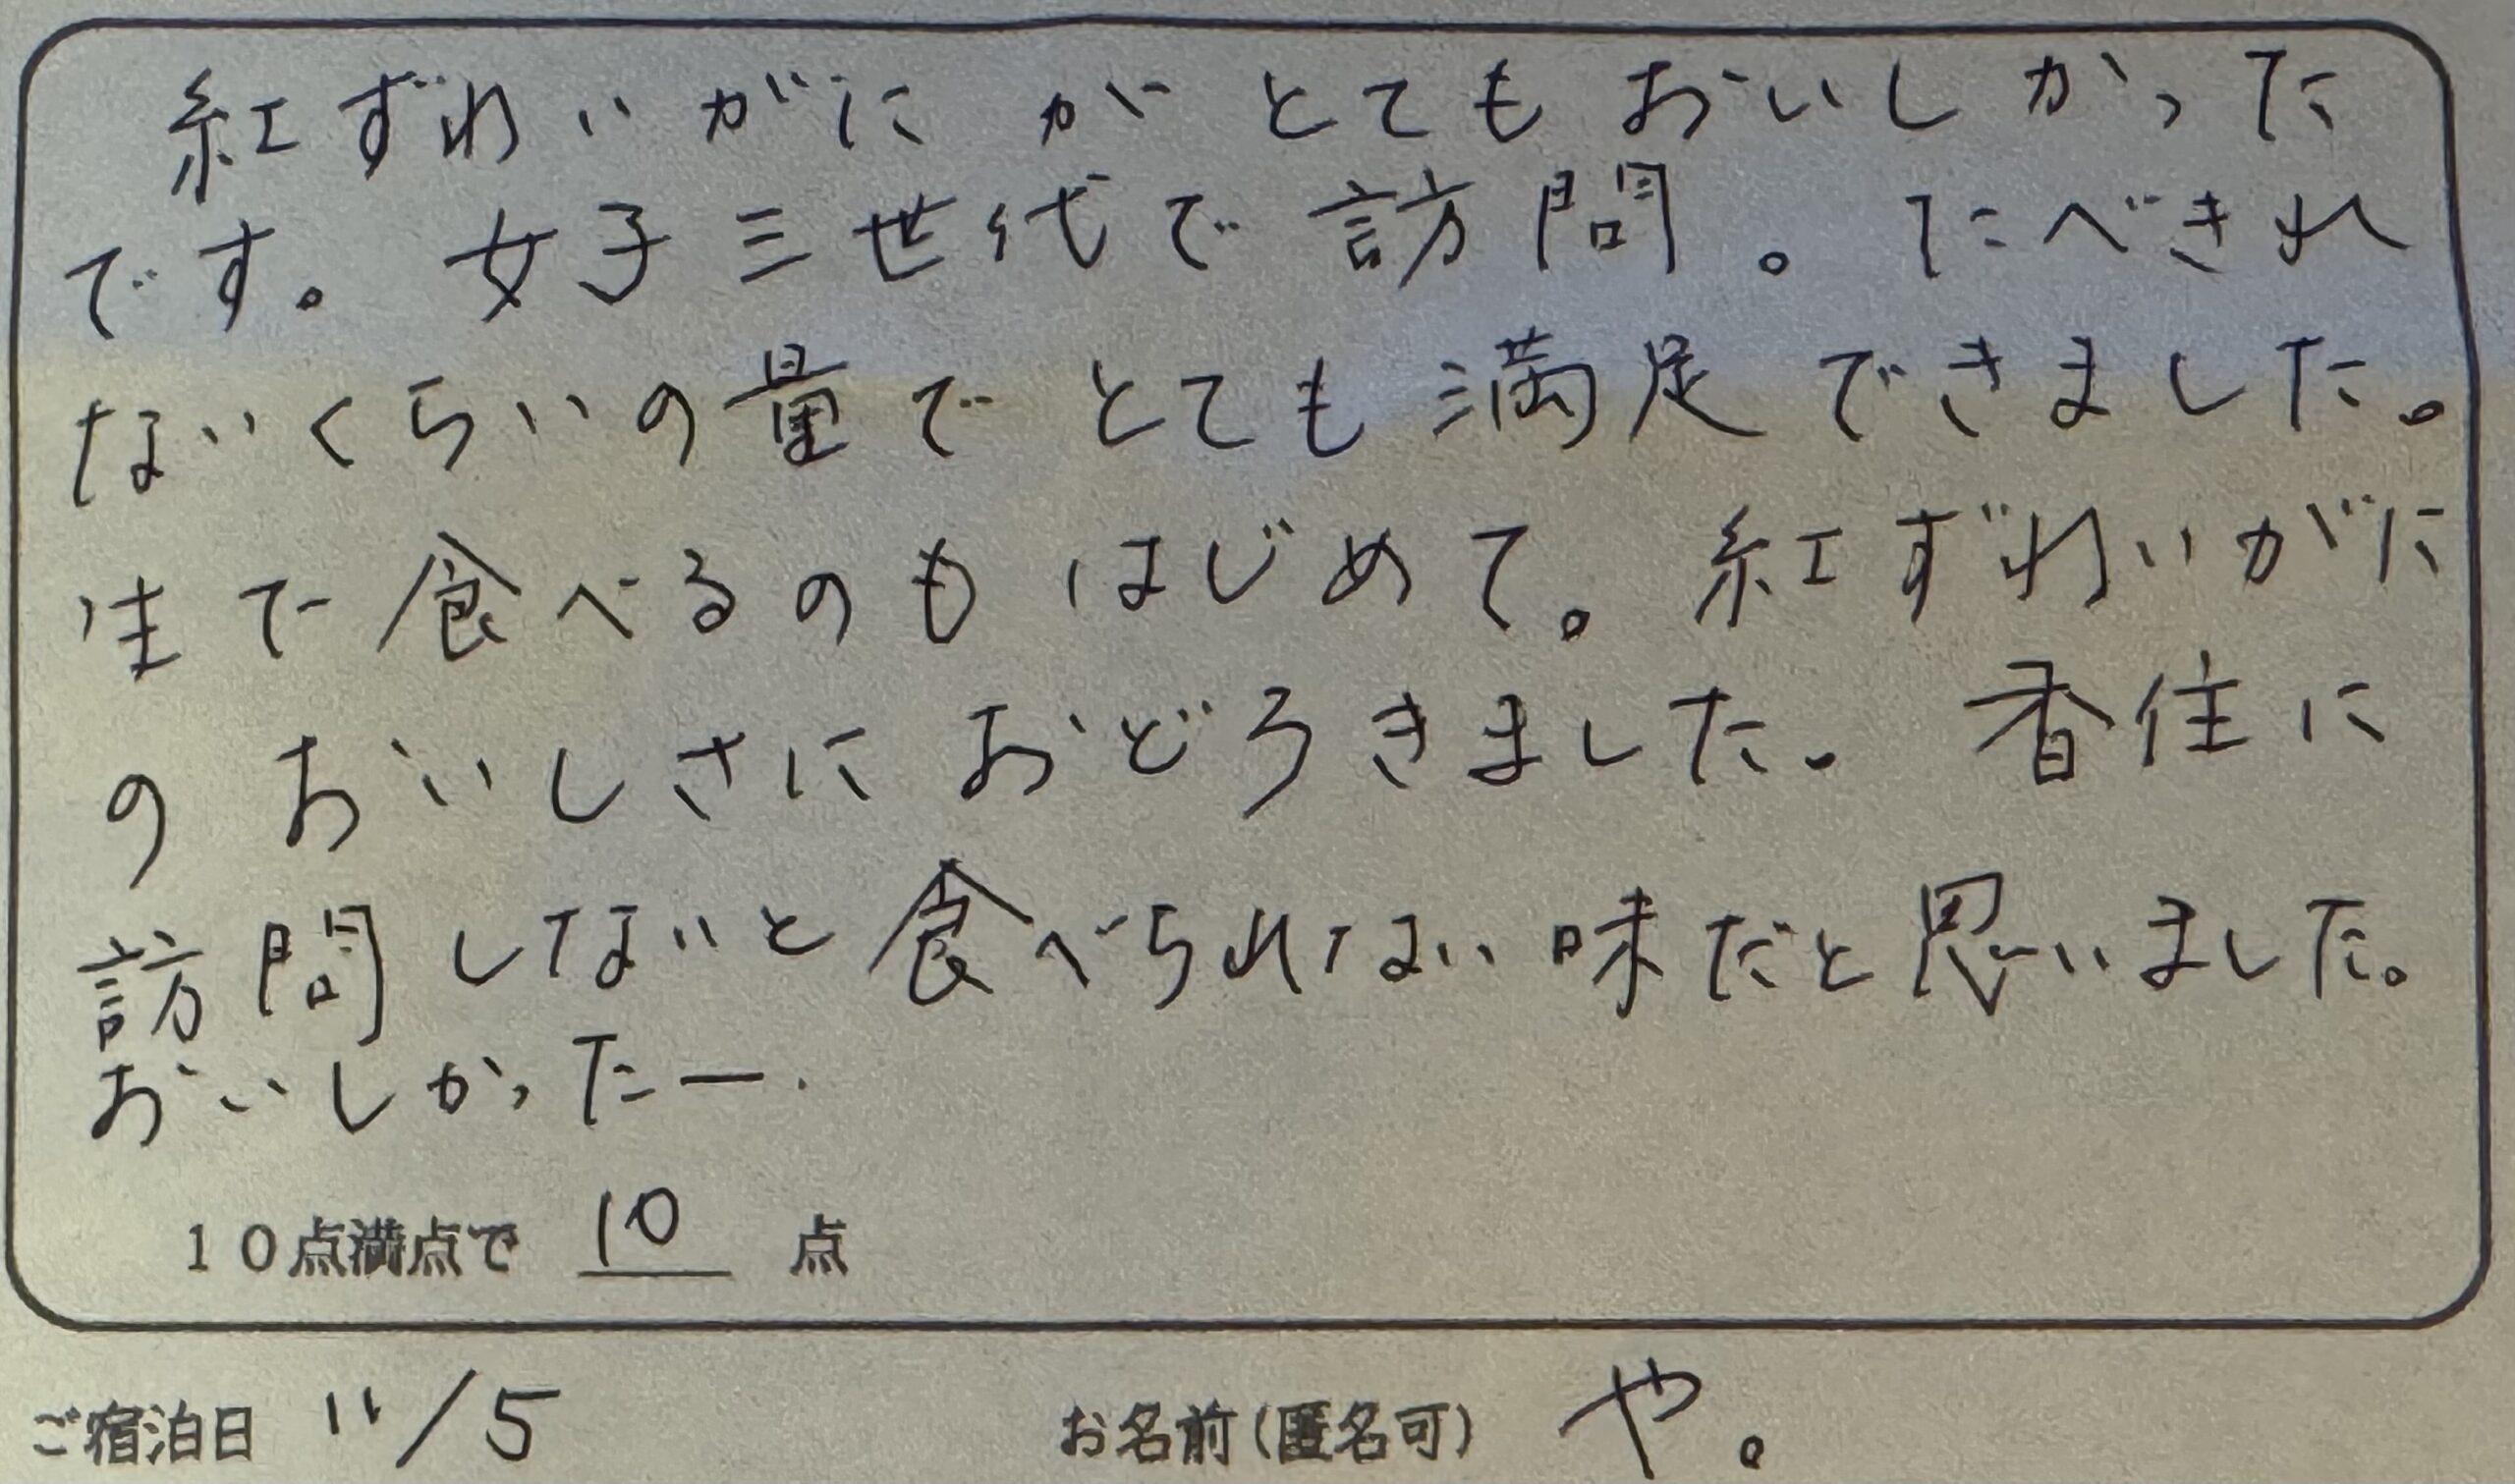 紅ずわいがにがとてもおいしかった
です。女子三世代で訪問。たべきれ
ないくらいの量でとても満足できました。
生で食べるのもはじめて。紅ずわいがに
のおいしさにおどろきました。香住に
訪問しないと食べられない味だと思いました。
おいしかったー.
10点満点で 10 点
ご宿泊日 11/5 お名前(匿名可) や。